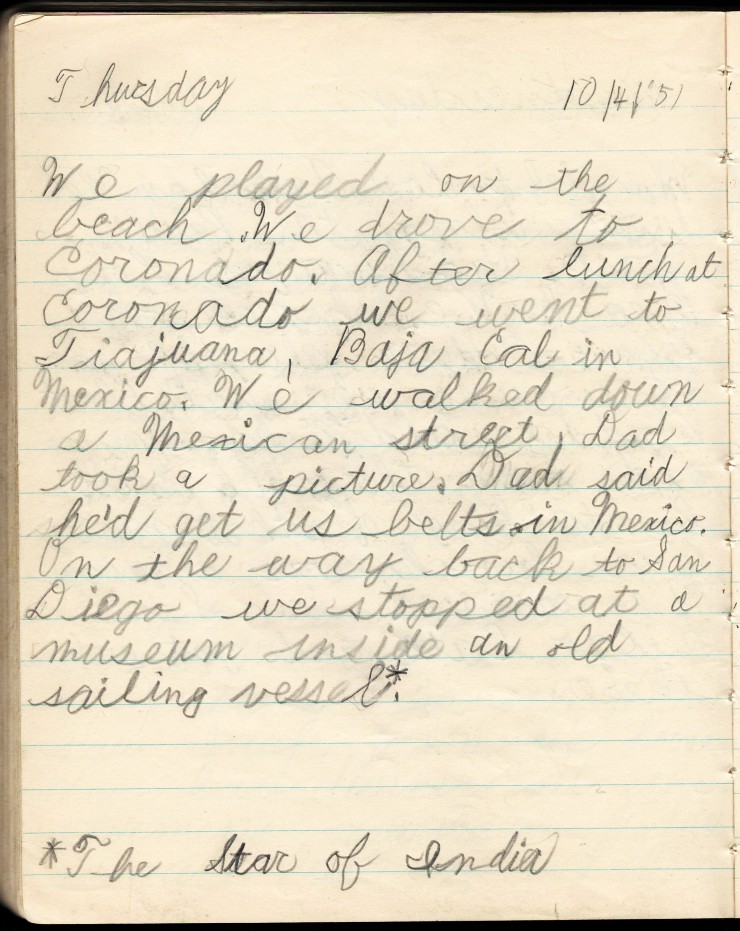 Thursday 10/4/'51
We played on the
beach. We drove to
Coronado. After lunch at
Coronado we went to
Tiajuana, Baja Cal in
Mexico. We walked down
a Mexican street, Dad
took a picture. Dad said
he'd get us belts in Mexico.
On the way back to San
Diego we stopped at a
museum inside an old
sailing vessel.*
*The Star of India